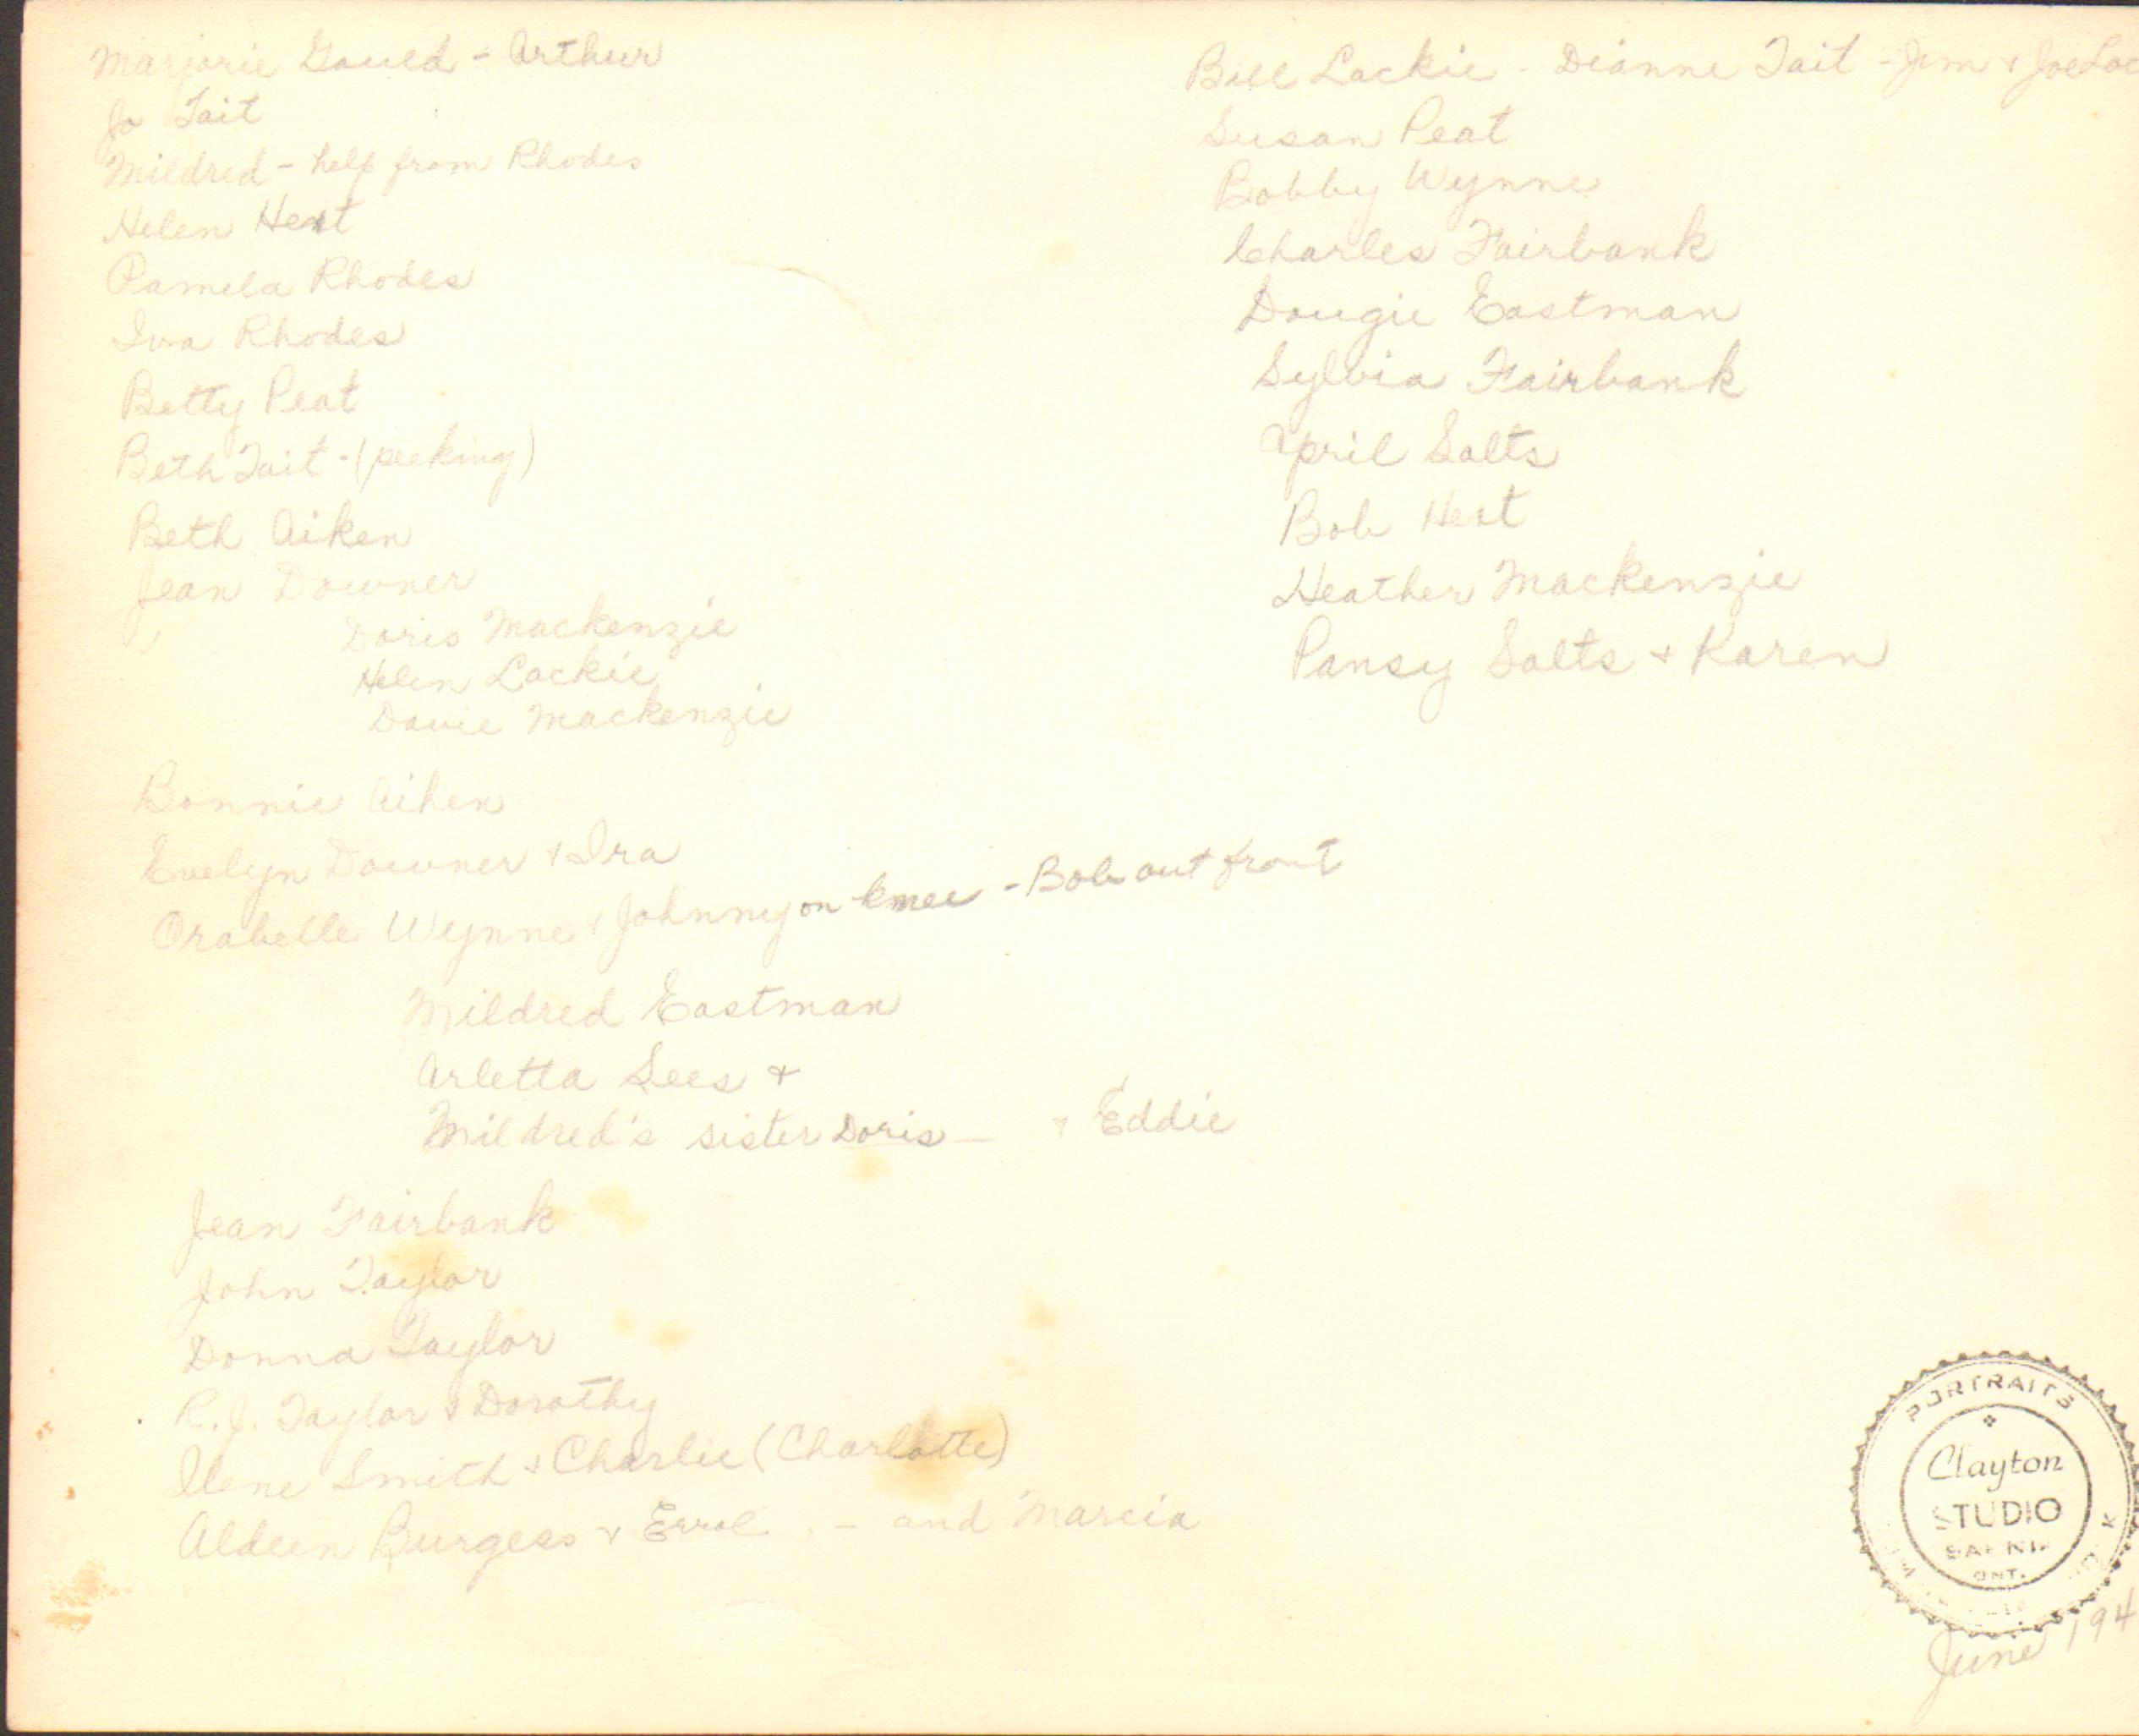 Marjorie Gould - Arthur
Jo Tait
Mildred - help from Rhodes
Helen Hext
Pamela Rhodes
Iva Rhodes
Betty Peat
Beth Tait - (peeking)
Beth Aiken
Jean Downer
Doris Mackenzie
Helen Lackie
Davie Mackenzie
Bonnie Aiken
Evelyn Downer & Ira
Orabelle Wynne & Johnny on knee - Bob out front
Mildred Eastman
Arletta Sees &
Mildred's sister Doris — & Eddie
Jean Fairbank
John Taylor
Donna Taylor
R.J. Taylor & Dorothy
Ilene Smith & Charlie (Charlotte)
Aldeen Burgess & Errol - and Marcia
Bill Lackie - Dianne Tait - Jim & Joe Lac
Susan Peat
Bobby Wynne
Charles Fairbank
Dougie Eastman
Sylvia Fairbank
April Salts
Bob Hext
Heather Mackenzie
Pansy Salts & Karen
PORTRAITS
Clayton
STUDIO
SARNIA
ONT.
June 194